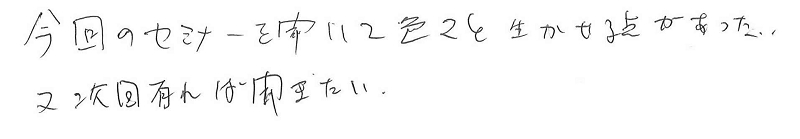 今回のセミナーを聞いて色々と生かせる点があった..
又次回有れば聞きたい.